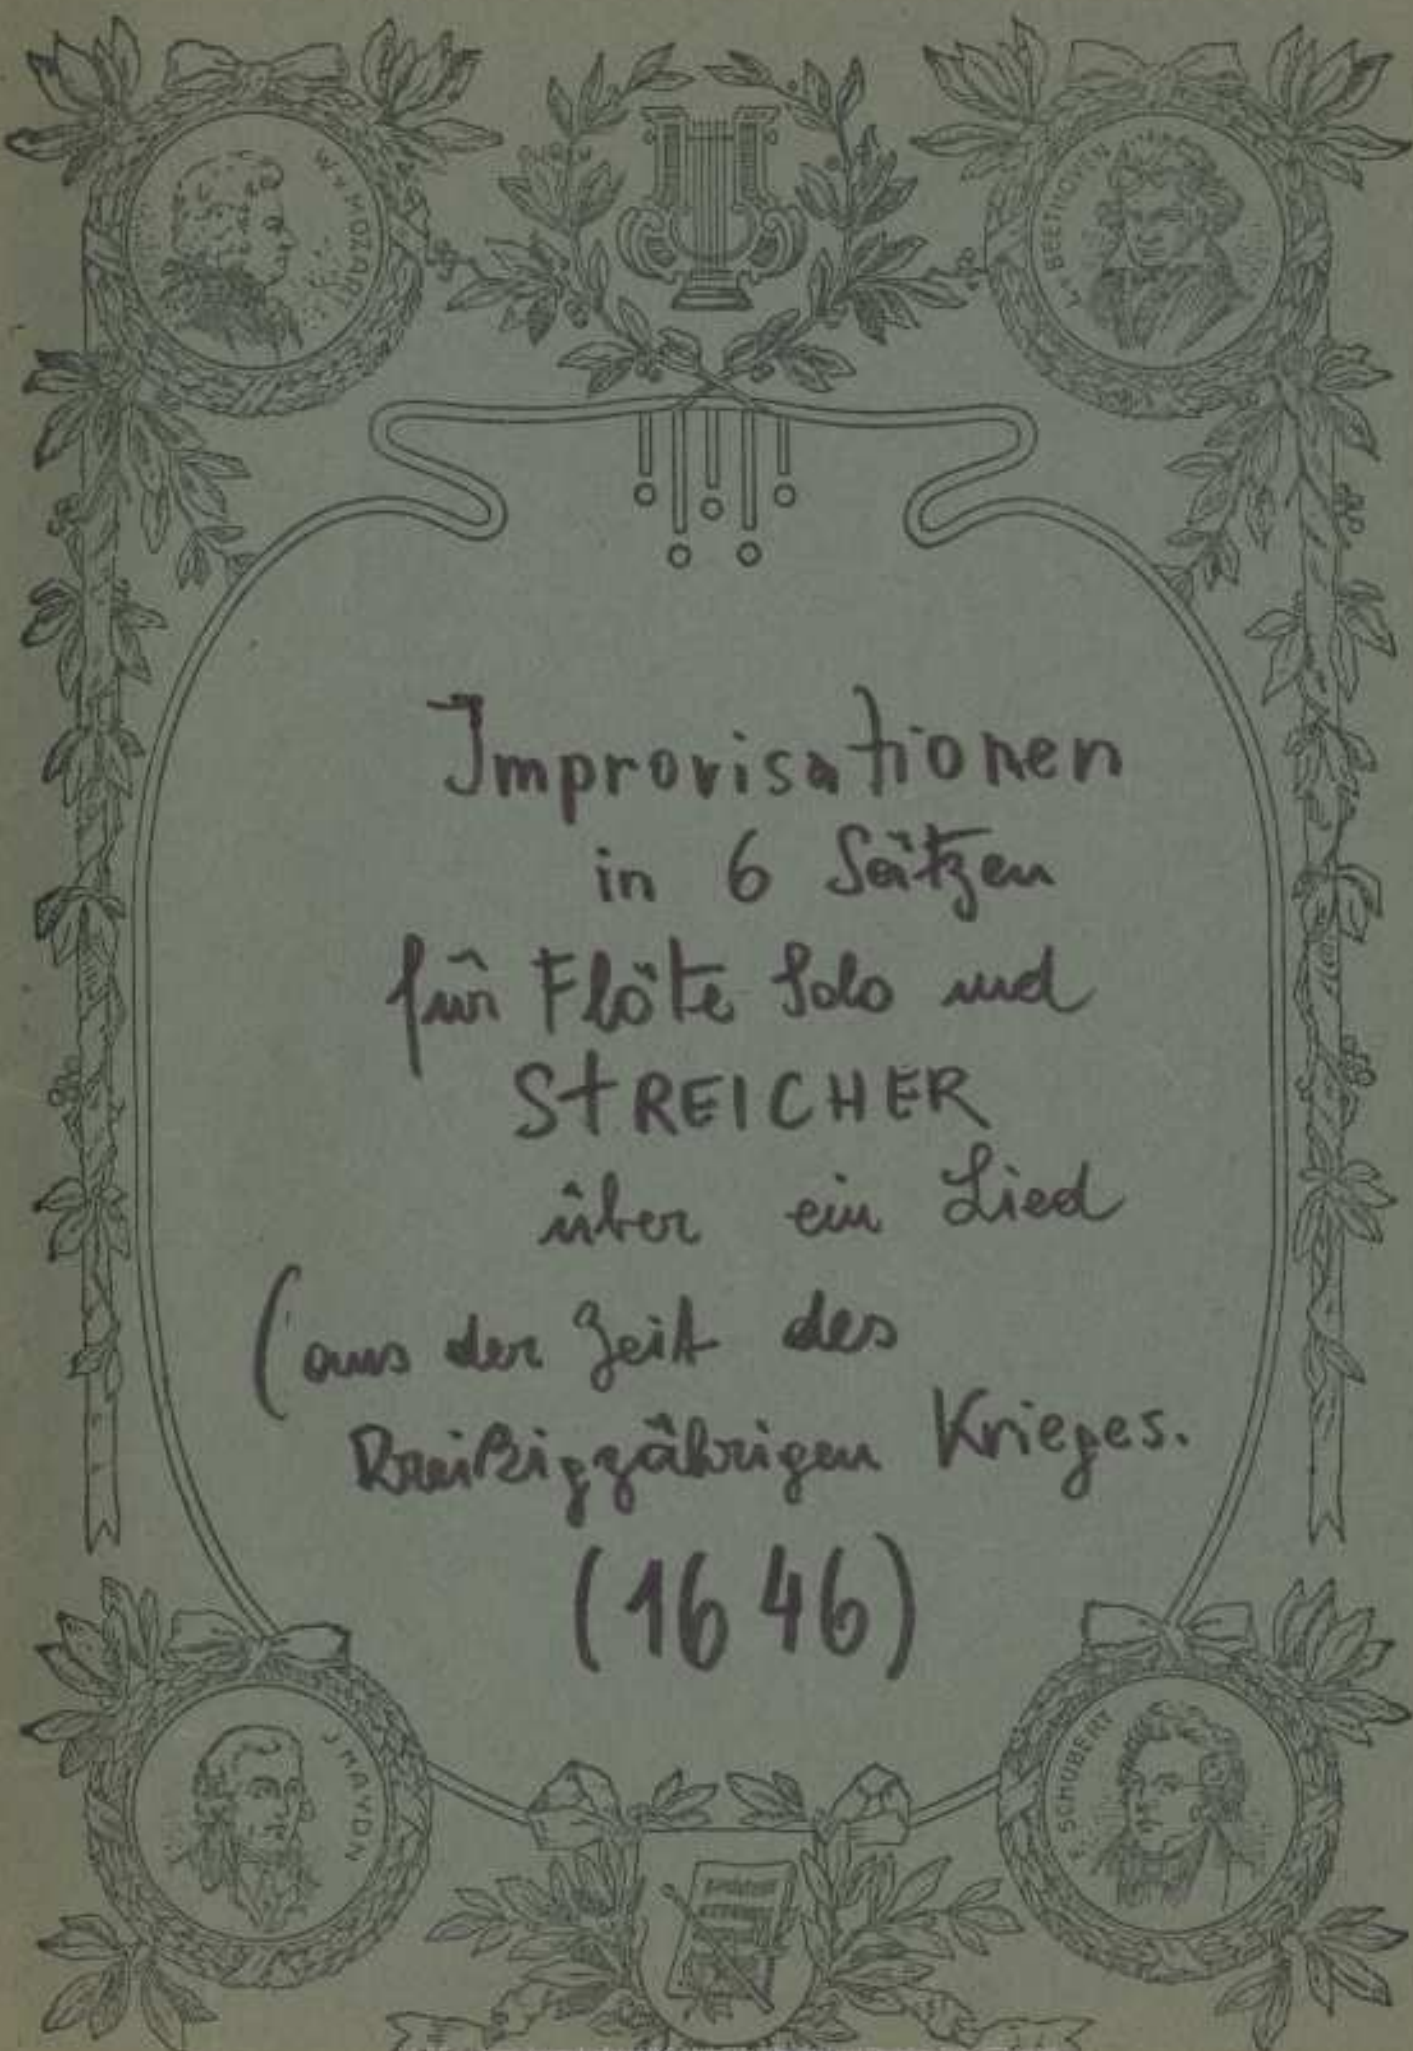 W. v. MOZART
L. v. BEETHOVEN
Improvisationen
in 6 Sätzen
für Flöte Solo und
StREICHER
über ein Lied
(aus der Zeit des
Dreißigjährigen Krieges.
(1646)
J HAYDN
F. SCHUBERT